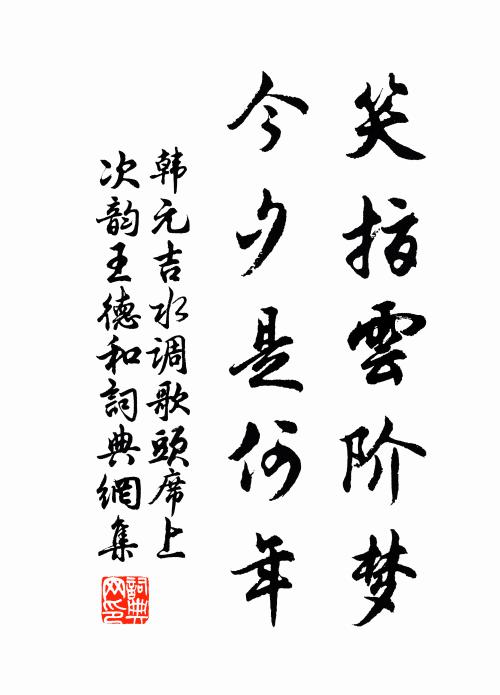 笑指雲阶梦
今夕是何年
韩元吉水调歌頭席上
次韵王德和詞典網集
詞典網印